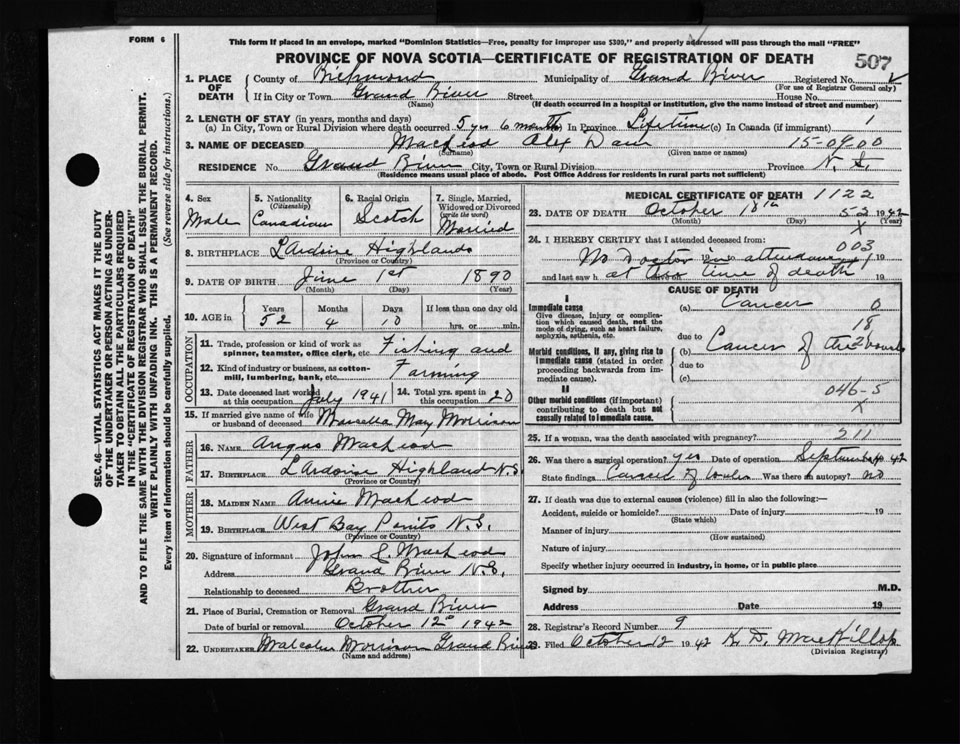 FORM 6
This form if placed in an envelope, marked "Dominion Statistics—Free, penalty for improper use $300," and properly addressed will pass through the mail "FREE"
PROVINCE OF NOVA SCOTIA—CERTIFICATE OF REGISTRATION OF DEATH
507
1. PLACE OF DEATH County of Richmond Municipality of Grand River Registered No.
(For use of Registrar General only)
If in City or Town Grand River Street House No.
(Name) (If death occurred in a hospital or institution, give the name instead of street and number)
2. LENGTH OF STAY (in years, months and days)
(a) In City, Town or Rural Division where death occurred 5 yrs 6 months In Province Lifetime (c) In Canada (if immigrant) 1
3. NAME OF DECEASED MacLeod Alex Dan 15-0900
(Surname) (Given name or names)
RESIDENCE No. Grand River City, Town or Rural Division Province N.S.
(Residence means usual place of abode. Post Office Address for residents in rural parts not sufficient)
4. Sex Male
5. Nationality (Citizenship) Canadian
6. Racial Origin Scotch
7. Single, Married, Widowed or Divorced (write the word) Married
8. BIRTHPLACE L'Ardoise Highlands
(Province or Country)
9. DATE OF BIRTH June 1st 1890
(Month) (Day) (Year)
10. AGE in Years 52 Months 4 Days 10 If less than one day old hrs. or min.
OCCUPATION
11. Trade, profession or kind of work as spinner, teamster, office clerk, etc. Fishing and
12. Kind of industry or business, as cotton-mill, lumbering, bank, etc. Farming
13. Date deceased last worked at this occupation July 1941 14. Total yrs. spent in this occupation 20
15. If married give name of wife or husband of deceased Marsella May Morrison
FATHER
16. NAME Angus MacLeod
17. BIRTHPLACE L'Ardoise Highland N.S.
(Province or Country)
MOTHER
18. MAIDEN NAME Annie MacLeod
19. BIRTHPLACE West Bay Points N.S.
(Province or Country)
20. Signature of informant John S. MacLeod
Address Grand River N.S.
Relationship to deceased Brother
21. Place of Burial, Cremation or Removal Grand River
Date of burial or removal October 12 1942
22. UNDERTAKER Malcolm Morrison Grand River
(Name and address)
MEDICAL CERTIFICATE OF DEATH 1122
23. DATE OF DEATH October 10th 52 1942
(Month) (Day) (Year)
X
24. I HEREBY CERTIFY that I attended deceased from: 003
No Doctor in attendance
and last saw h at the time of death 19
CAUSE OF DEATH
I
Immediate cause
Give disease, injury or complication which caused death, not the mode of dying, such as heart failure, asphyxia, asthenia, etc.
(a) Cancer 0
due to 18
Morbid conditions, if any, giving rise to immediate cause (stated in order proceeding backwards from immediate cause).
(b) Cancer of the bowels
due to
(c)
II
Other morbid conditions (if important) contributing to death but not causally related to immediate cause.
046-5
X
25. If a woman, was the death associated with pregnancy? 211
26. Was there a surgical operation? yes Date of operation September 42
State findings Cancer of bowles Was there an autopsy? no
27. If death was due to external causes (violence) fill in also the following:—
Accident, suicide or homicide? Date of injury 19
(State which)
Manner of injury
(How sustained)
Nature of injury
Specify whether injury occurred in industry, in home, or in public place
Signed by M.D.
Address Date 19
28. Registrar's Record Number 9
29. Filed October 12 1942 K. D. MacKillop
(Division Registrar)
SEC. 46—VITAL STATISTICS ACT MAKES IT THE DUTY
OF THE UNDERTAKER OR PERSON ACTING AS UNDER-
TAKER TO OBTAIN ALL THE PARTICULARS REQUIRED
IN THE "CERTIFICATE OF REGISTRATION OF DEATH"
AND TO FILE THE SAME WITH THE DIVISION REGISTRAR WHO SHALL ISSUE THE BURIAL PERMIT.
WRITE PLAINLY WITH UNFADING INK. THIS IS A PERMANENT RECORD.
Every item of information should be carefully supplied. (See reverse side for instructions.)